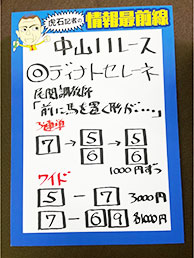 虎石記者の
情報最前線
中山11レース
◎ディナトセレーネ
民間調教所
「前に馬を置く形が…」
3連単
7→5→5
6 6
1000円ずつ
ワイド
5-7 3000円
7-69 各1000円